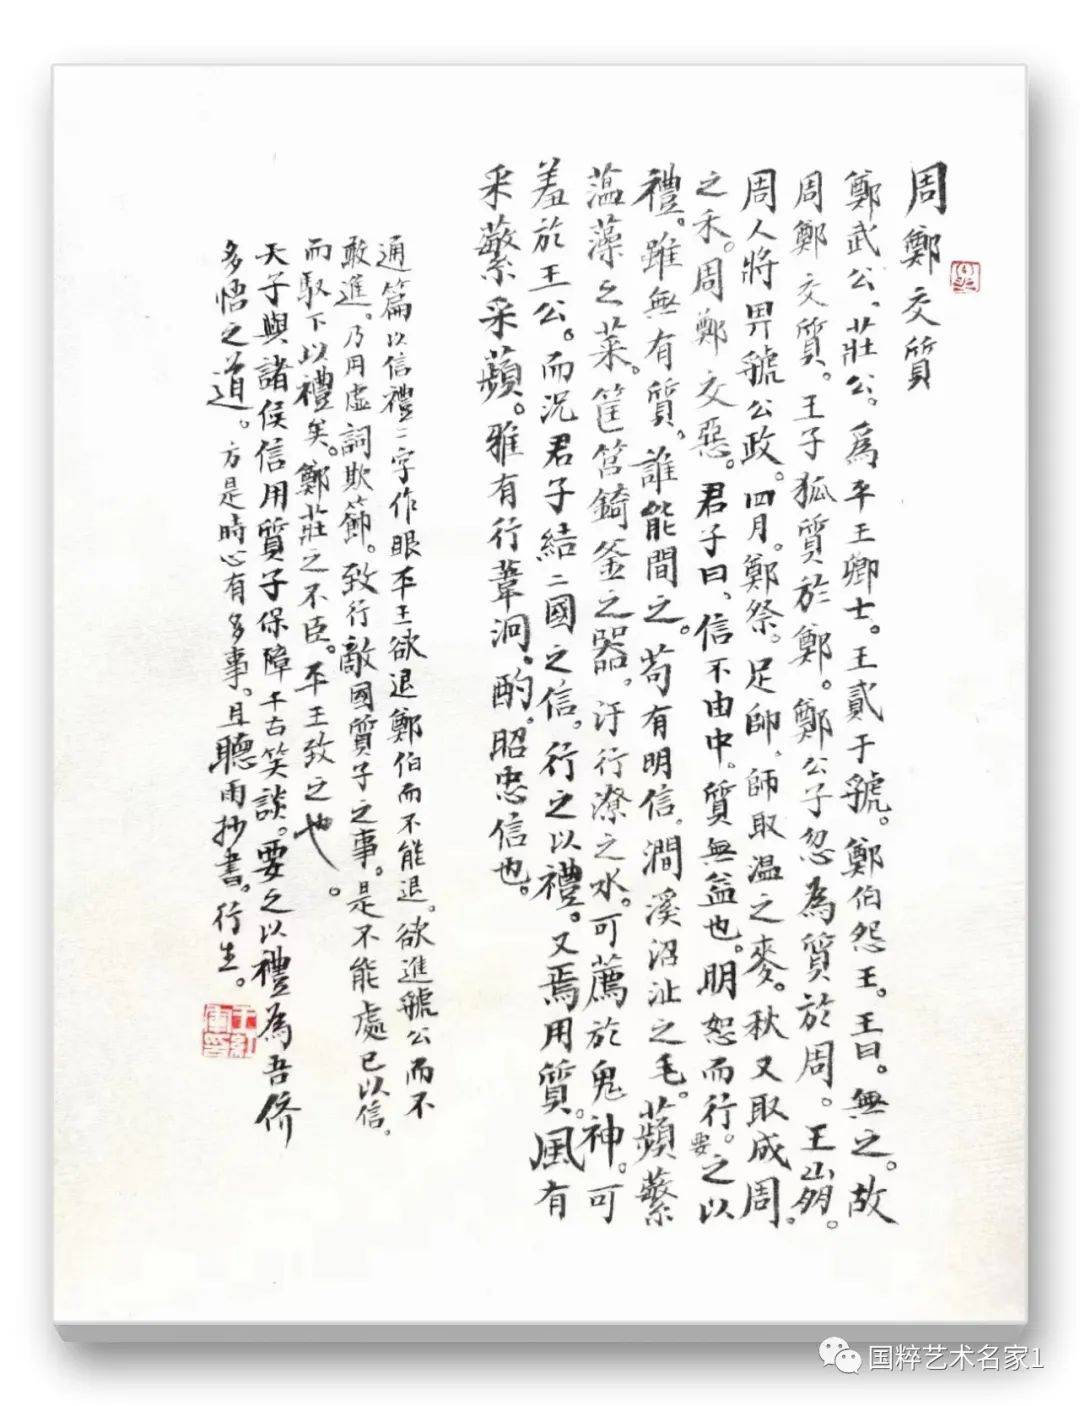 周鄭交質
鄭武公、莊公。為平王卿士。王貳于虢。鄭伯怨王。王曰。無之。故
周鄭交質。王子狐質於鄭。鄭公子忽為質於周。王崩。
周人將畀虢公政。四月。鄭祭。足帥，師取温之麥。秋又取成周。
之禾。周鄭交惡。君子曰、信不由中。質無益也。明恕而行。要之以
禮。雖無有質。誰能間之。苟有明信。澗溪沼沚之毛。蘋蘩
薀藻之菜。筐筥錡釜之器。汙行潦之水。可薦於鬼神。可
羞於王公。而況君子結二國之信。行之以禮。又焉用質。風有
采蘩采蘋。雅有行葦泂。酌。昭忠信也。
通篇以信禮二字作眼平王欲退鄭伯而不能退。欲進虢公而不
敢進。乃用虛詞欺篩。致行敵國質子之事。是不能處已以信。
而馭下以禮矣。鄭莊之不臣。平王致之也。
天子與諸侯信用質子保障千古笑談。要之以禮為吾儕
多悟之道。方是時心有多事。且聽雨抄書。行生。
国粹艺术名家1